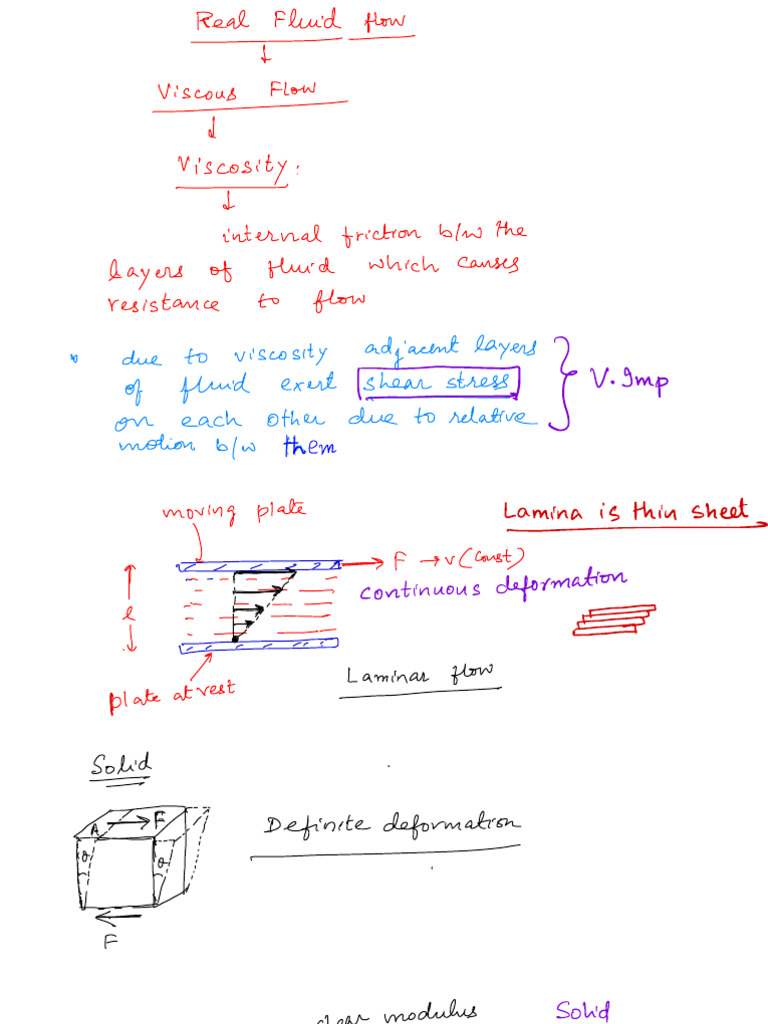 Real Fluid flow
Viscous Flow
Viscosity.
internal friction b/w the
layers of fluid which causes
resistance to flow
due to viscosity adjacent layers
of fluid exert shear stress
on each other due to relative
motion b/w them
V.Imp
moving plate
Lamina is thin sheet
F → v (const)
continuous deformation
l
Laminar flow
plate at rest
Solid
A F
θ θ
Definite deformation
F
modulus Solid